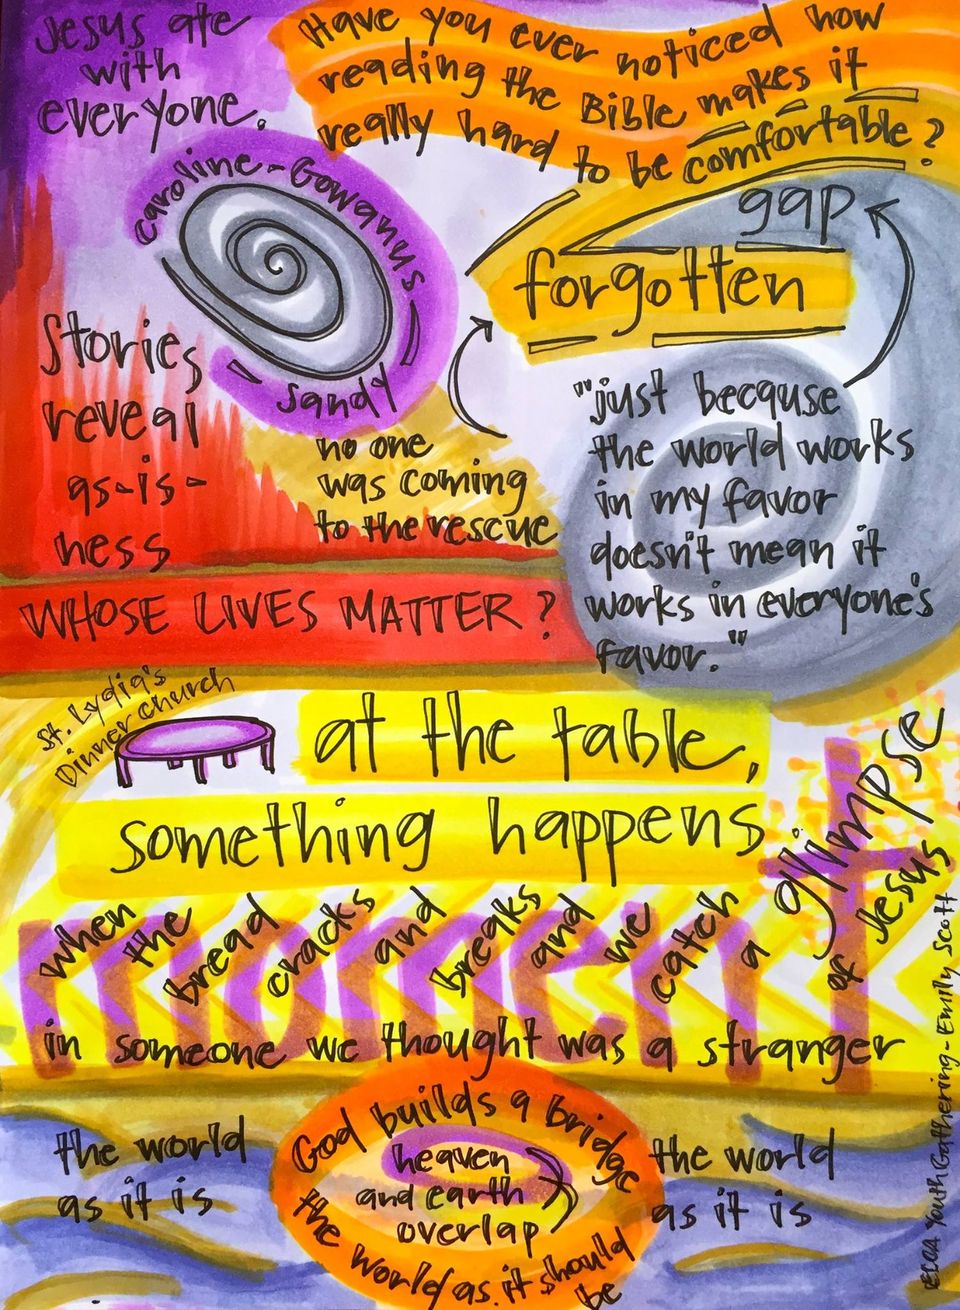 Jesus ate
with
everyone.
Have you ever noticed how
reading the Bible makes it
really hard to be comfortable?
Caroline - Gowanus
Sandy
gap
forgotten
Stories
reveal
as-is-
ness
no one
was coming
to the rescue
"just because
the world works
in my favor
doesn't mean it
works in everyone's
favor."
WHOSE LIVES MATTER?
St. Lydia's
Dinner Church
at the table,
something happens
moment
when the bread cracks and breaks and we catch a glimpse of Jesus
in someone we thought was a stranger
the world
as it is
God builds a bridge
heaven
and earth
overlap
the world as it should be
the world
as it is
ELCA Youth Gathering - Emily Scott